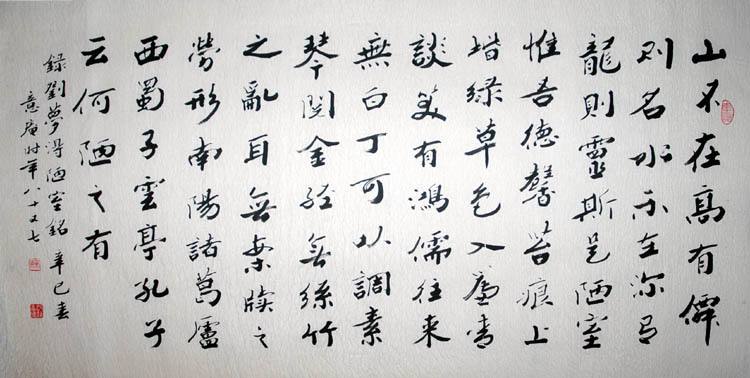 山不在高有僊
则名水不在深有
龍則靈斯是陋室
惟吾德馨苔痕上
堦緑草色入簾青
談笑有鴻儒往来
無白丁可以調素
琴閲金經無絲竹
之亂耳無案牘之
勞形南陽諸葛廬
西蜀子雲亭孔子
云何陋之有
録劉夢得陋室銘 辛巳春
意庵时年八十又七